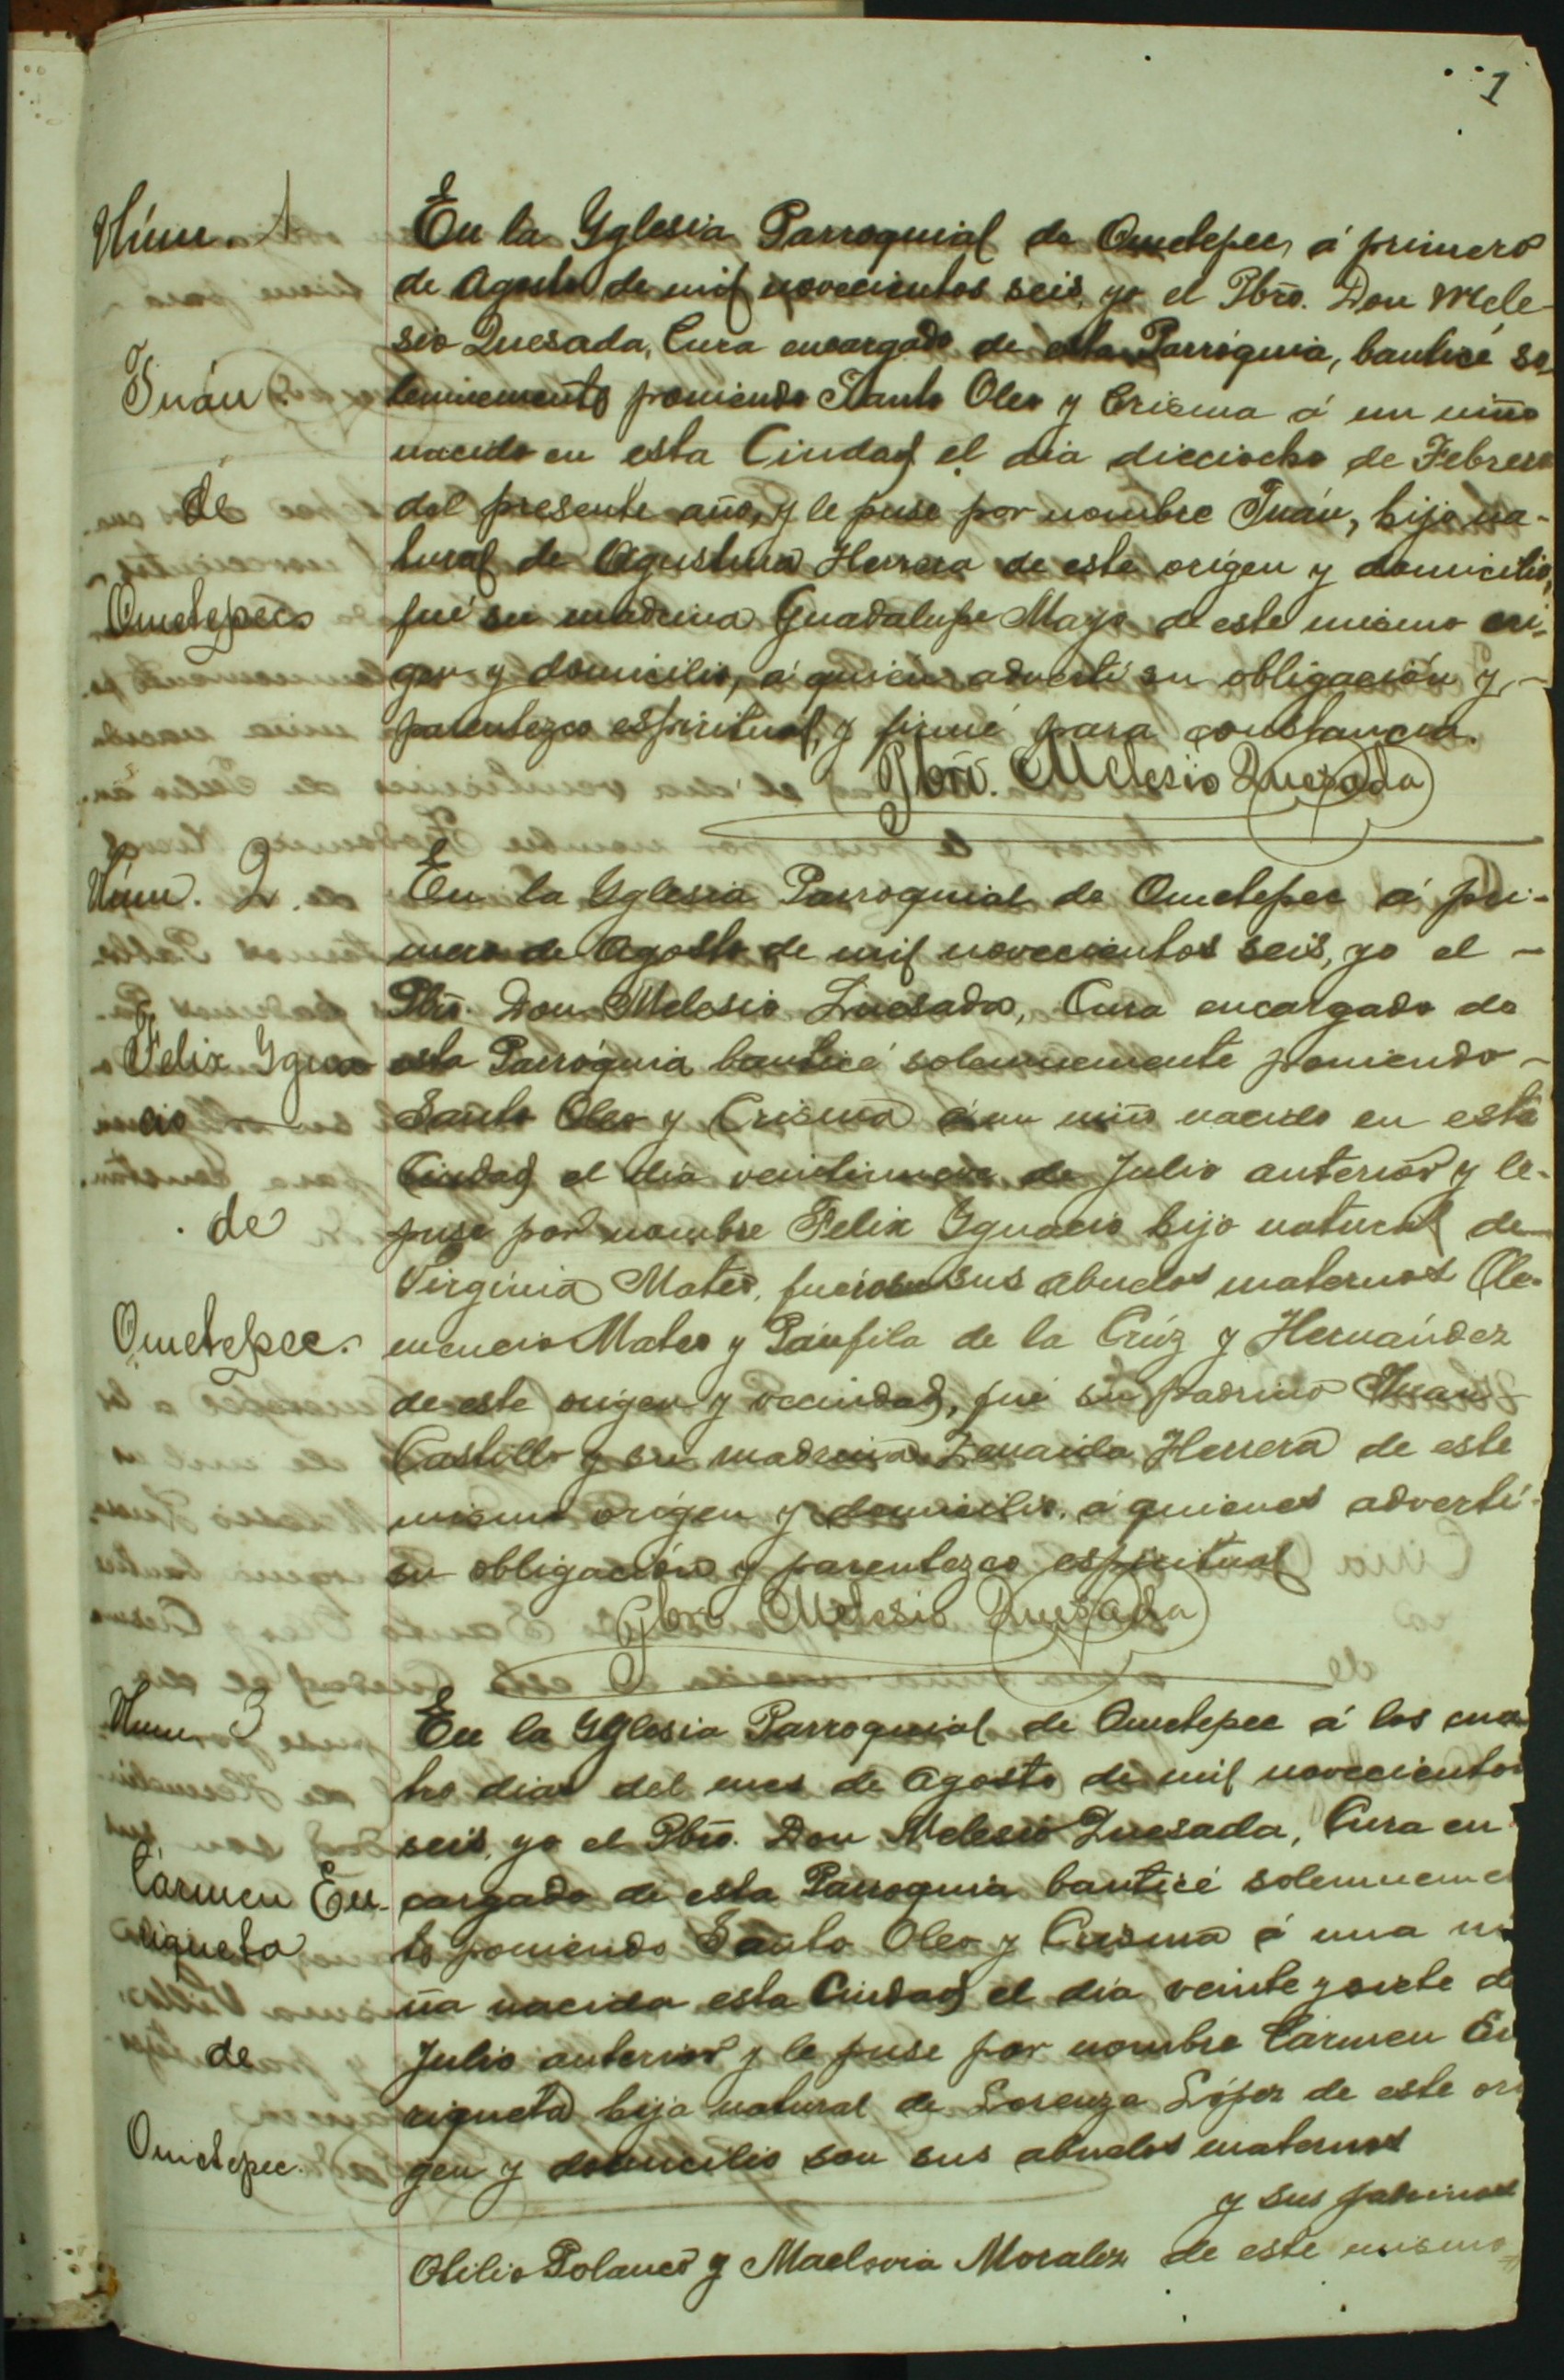 1
Núm. 1
En la Yglesia Parroquial de Ometepec, á primero
de Agosto de mil novecientos seis, yo el Pbro. Don Mele-
sio Quesada, Cura encargado de esta Parróquia, bauticé so-
Juán.
lemnemente poniendo Santo Oleo y Crisma á un niño
nacido en esta Ciudad el dia dieciocho de Febrero
de
del presente año, y le puse por nombre Juán, hijo na-
tural de Agustina Herrera de este orígen y domicilio,
Ometepec
fué su madrina Guadalupe Mayo de este mismo orí-
gen y domicilio, á quien advertí su obligación y -
parentezco espiritual, y firmé para constancia.
Pbro. Melesio Quesada
Núm. 2.
En la Yglesia Parroquial de Ometepec á pri-
mero de Agosto de mil novecientos seis, yo el -
Pbro. Don Melesio Quesada, Cura encargado de
Felix Ygna
esta Parróquia bauticé solemnemente poniendo -
cio
Santo Oleo y Crisma á un niño nacido en esta
Ciudad el día veintinueve de Julio anterior y le-
de
puse por nombre Felix Ygnacio hijo natural de
Virginia Mateo, fueron sus abuelos maternos Cle-
Ometepec.
mencio Mateo y Pánfila de la Crúz y Hernández
de este orígen y vecindad, fué su padrino Juan
Castillo y su madrina Zenaida Herrera de este
mismo orígen y domicilio, á quienes advertí-
su obligación y parentezco espiritual
Pbro. Melesio Quesada
Num. 3
En la Yglesia Parroquial de Ometepec á los cua
tro dias del mes de Agosto de mil novecientos
seis, yo el Pbro. Don Melesio Quesada, Cura en
Cármen En-
cargado de esta Parroquia bauticé solemneme
riqueta
te poniendo Santo Oleo y Crisma á una ni
ña nacida esta Ciudad el día veinte y siete de
de
Julio anterior y le puse por nombre Cármen En
riqueta hija natural de Lorenza López de este orí
Ometepec.
gen y domicilio son sus abuelos maternos
y sus padrinos
Otilio Polanco y Maclovia Moralez de este mismo=